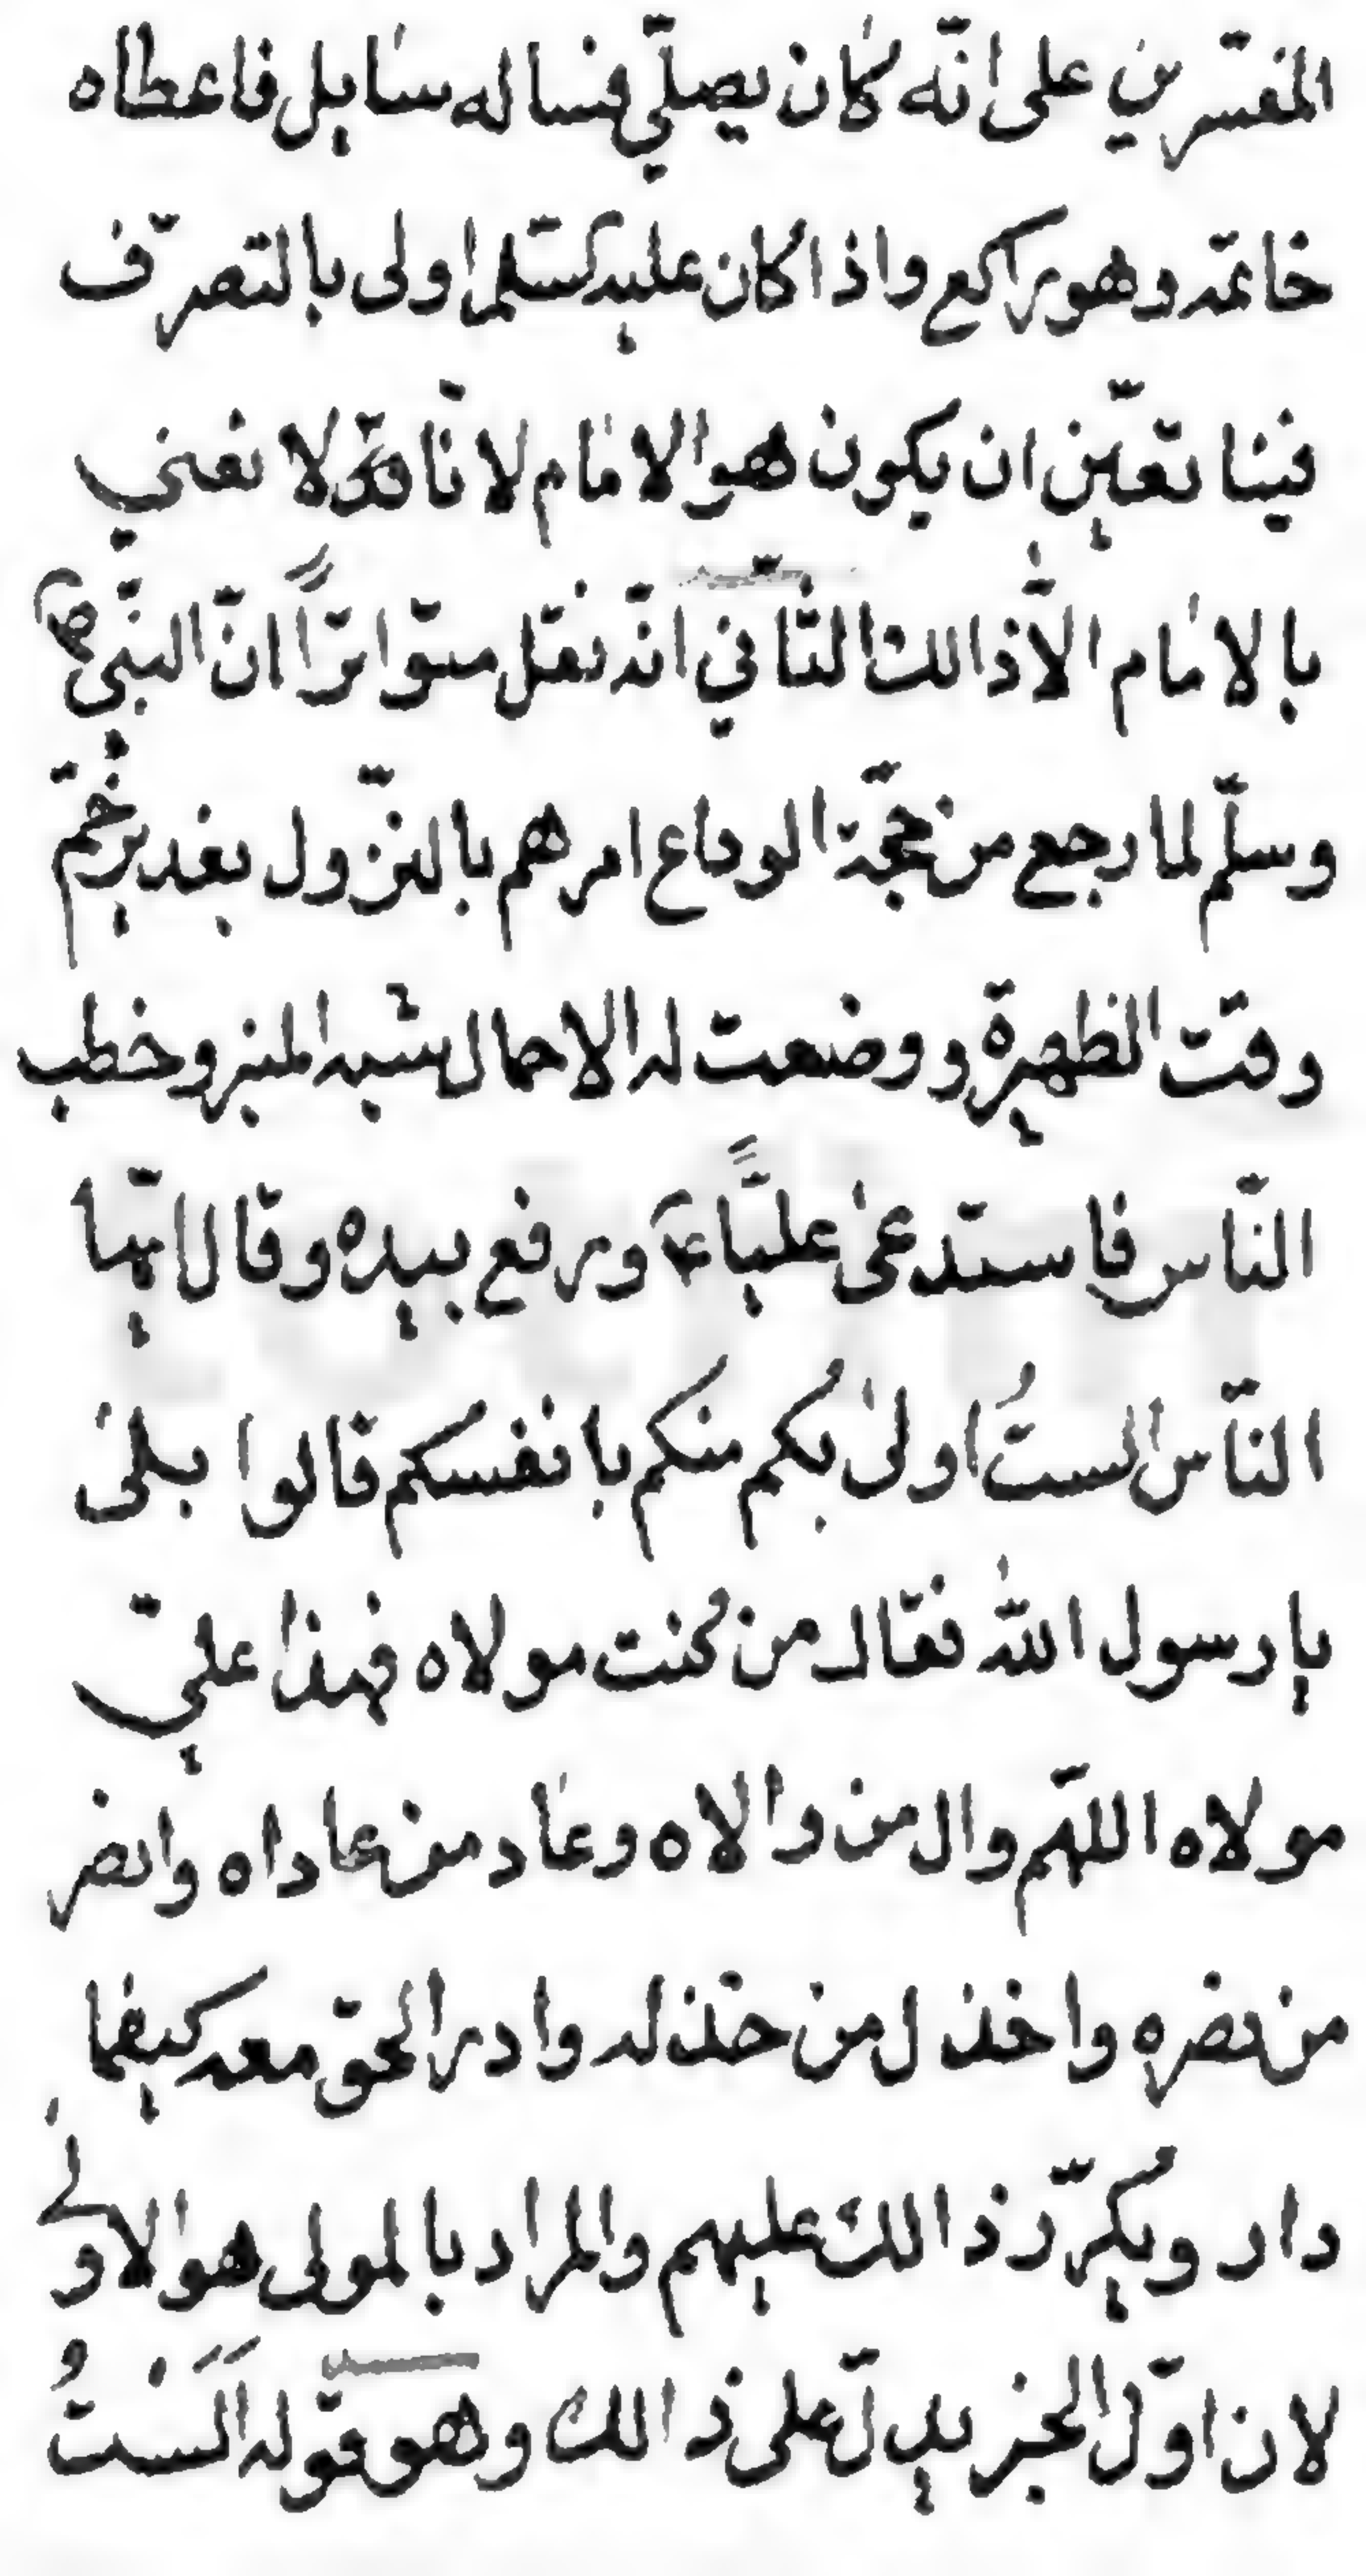 المفسّرين على انّه كان يصلّي فساله سايل فاعطاه
خاتمه وهو راكع واذا كان عليه السّلم اولى بالتصرّف
فينا تعيّن ان يكون هو الامام لانّا لا نعني
بالامام الّا ذالك الثّاني انّه نقل متواتراً انّ النبّي ص
وسلّم لما رجع من حجّة الوداع امرهم بالنزّول بغدير خُمّ
وقت الظهيرة ووضعت له الاحمال شبه المنبر وخطب
النّاس فاستدعى عليّاً ع ورفع بيده وقال ايّها
النّاس الستُ اولى بكم منكم بانفسكم قالوا بلى
يا رسول الله فقال من كنت مولاه فهذا عليّ
مولاه اللهّم وال من والاه وعاد من عاداه وانصر
من نصره واخذل من خذله وادر الحق معه كيفما
دار ويكرّر ذالك عليهم والمراد بالمولى هو الاولى
لان اوّل الخبر يدلّ على ذالك وهو قوله اَلَسْتُ